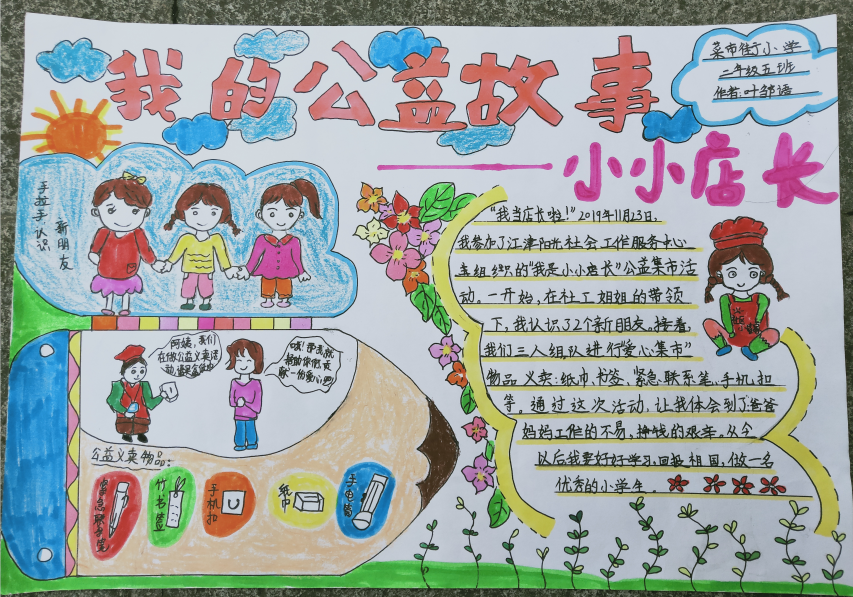 我的公益故事
菜市街小学
二年级五班
作者:叶邹语
——小小店长
手拉手认识
新朋友
“我当店长啦!”2019年11月23日,
我参加了江津阳光社会工作服务中心
组织的“我是小小店长”公益集市活
动。一开始,在社工姐姐的带领
下,我认识了2个新朋友。接着,
我们三人组队进行“爱心集市”
物品义卖:纸巾、书签、紧急联系笔、手机扣
等。通过这次活动,让我体会到了爸爸
妈妈工作的不易,挣钱的艰辛,从今
以后我要好好学习,回报祖国,做一名
优秀的小学生。
阿姨,我们
在做公益义卖活
哦!那我就
帮助你们,贡
献一份爱心吧!
公益义卖物品:
紧急联系笔
竹书签
手机扣
纸巾
手电筒